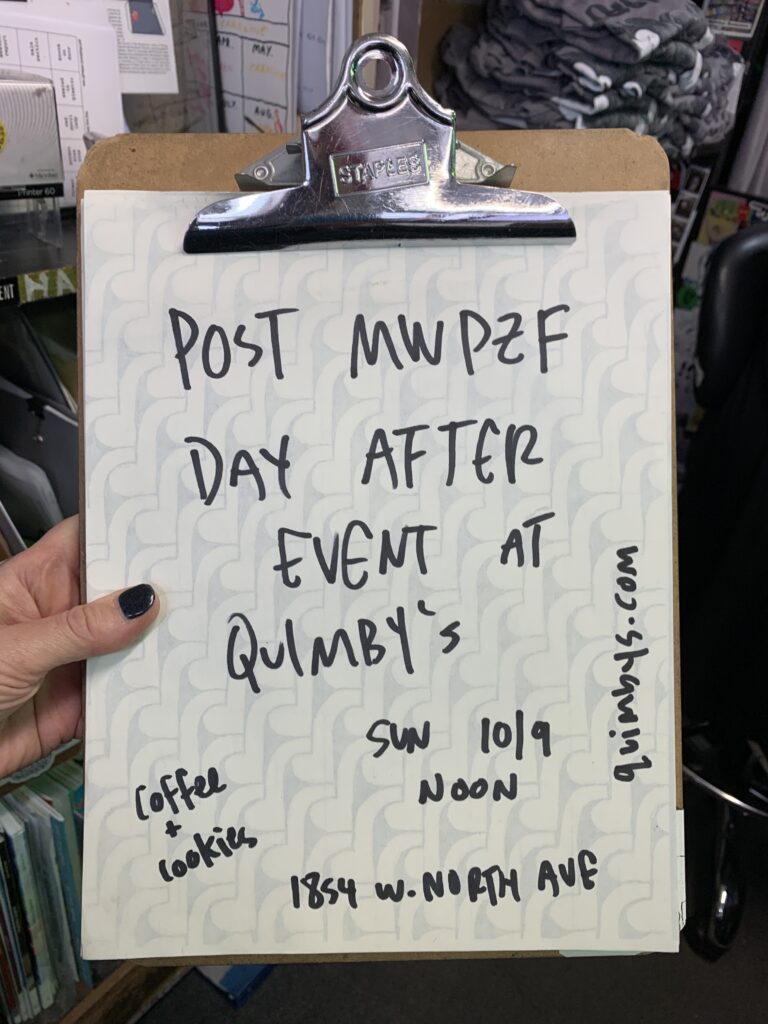 APR. MAY.
AUG.
Printer 60
STAPLES
POST MWPZF
DAY AFTER
EVENT AT
QUIMBY's
quimbys.com
SUN 10/9
NOON
coffee
+
cookies
1854 W. NORTH AVE